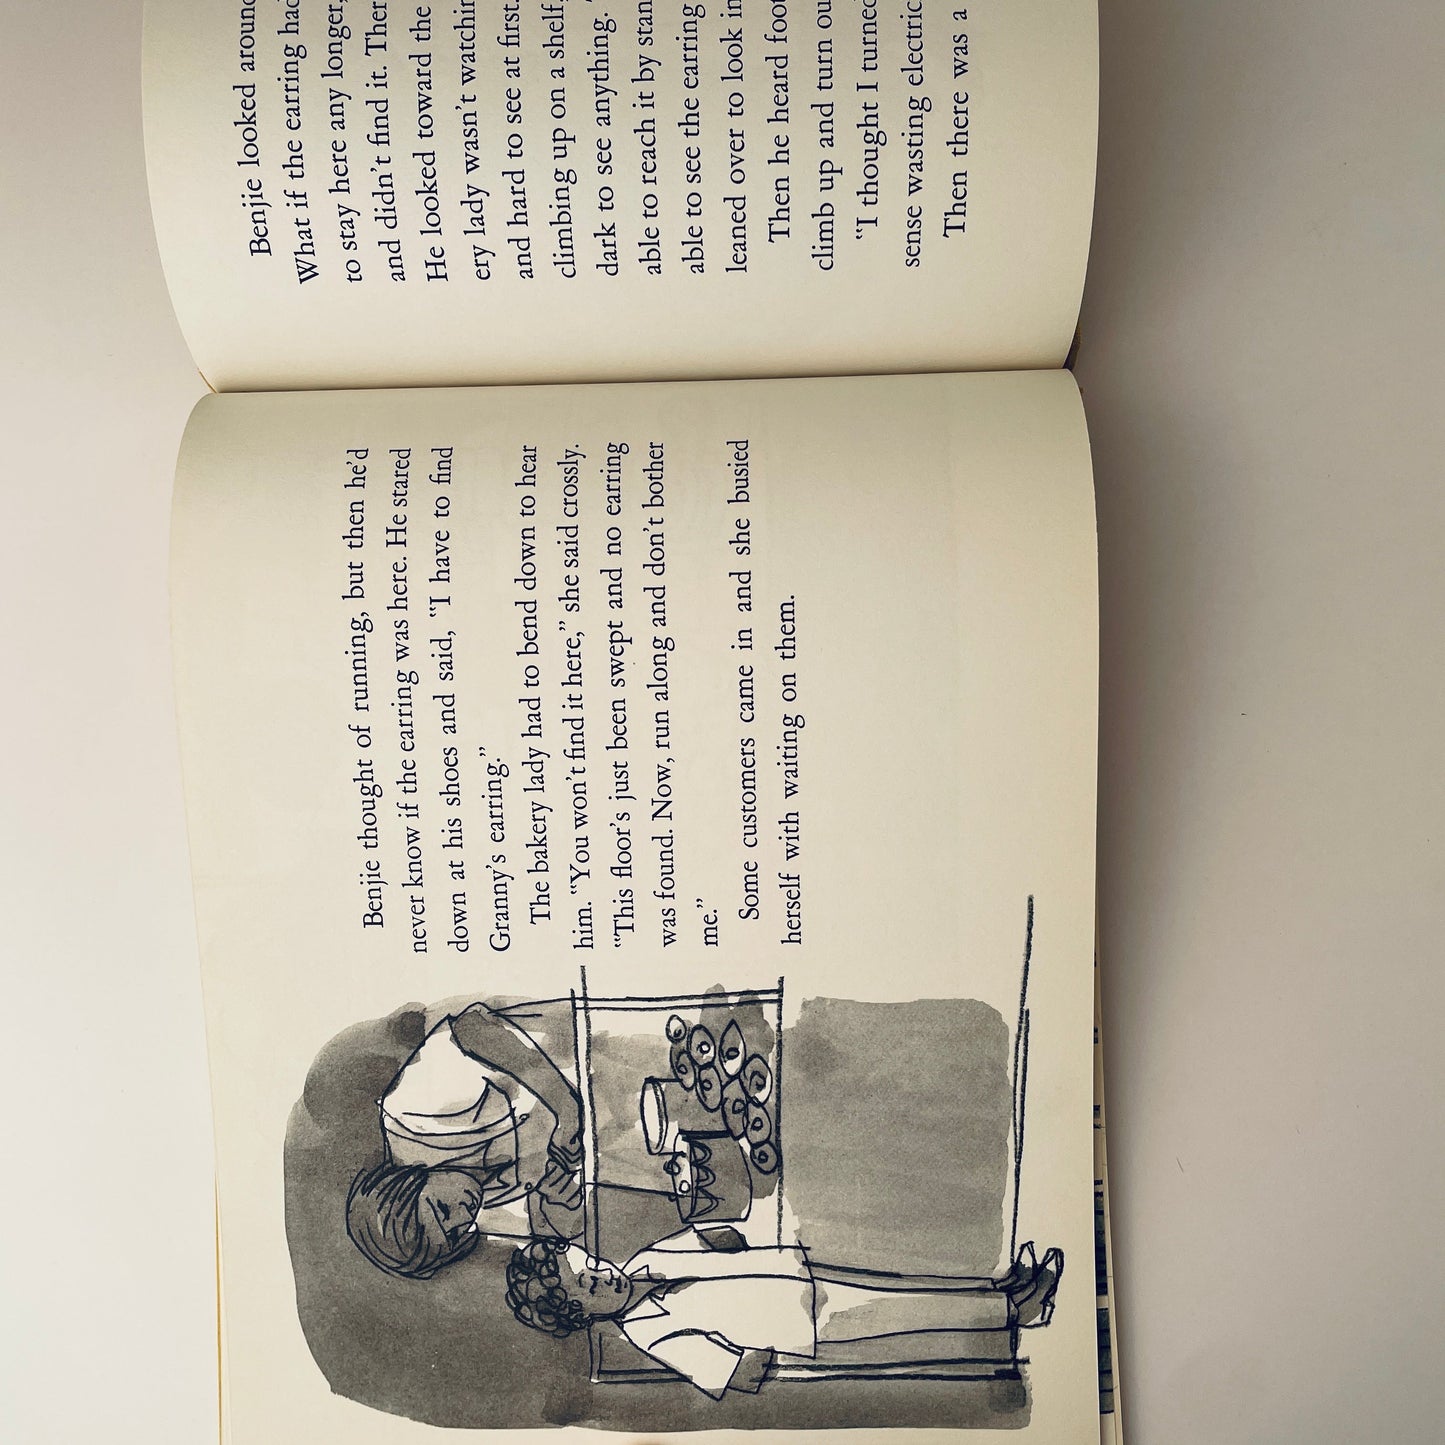 Benjie thought of running, but then he'd
never know if the earring was here. He stared
down at his shoes and said, "I have to find
Granny's earring."
The bakery lady had to bend down to hear
him. "You won't find it here," she said crossly.
"This floor's just been swept and no earring
was found. Now, run along and don't bother
me."
Some customers came in and she busied
herself with waiting on them.
Benjie looked around
What if the earring had
to stay here any longer,
and didn't find it. Ther
He looked toward the
ery lady wasn't watchin
and hard to see at first.
climbing up on a shelf,
dark to see anything.
able to reach it by stan
able to see the earring
leaned over to look in
Then he heard foo
climb up and turn ou
"I thought I turned
sense wasting electric
Then there was a